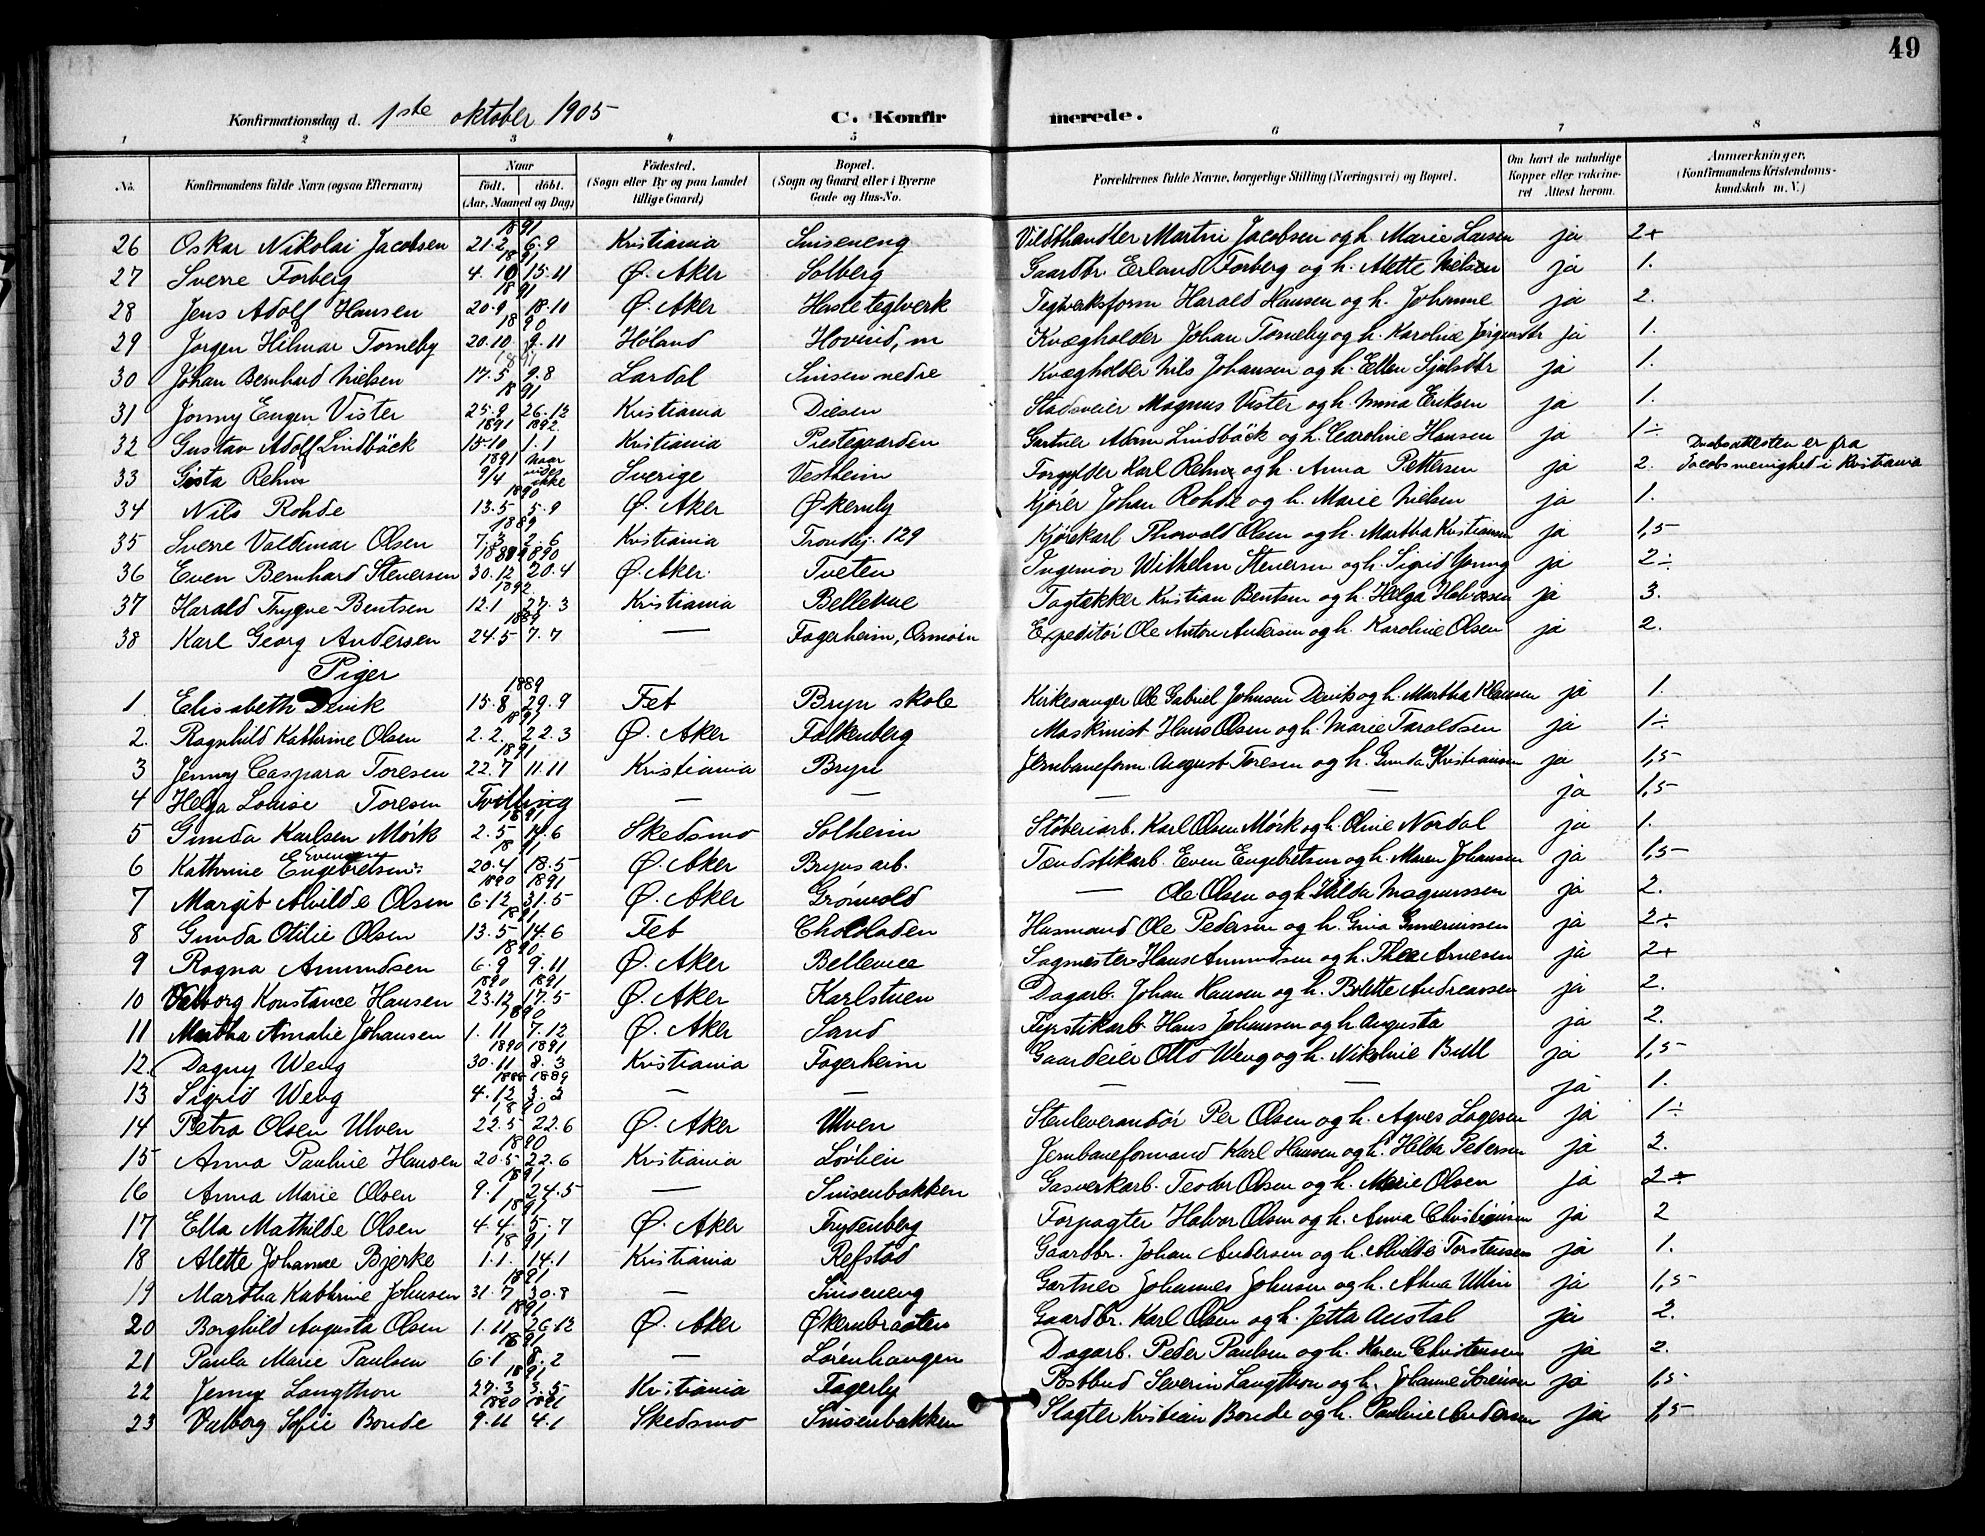 49
Konfirmationsdag d. 1ste oktober 1905 C. Konfirmerede.
1 2 3 4 5 6 7 8
No. Konfirmandens fulde Navn (ogsaa Efternavn) Naar født, døbt. (Aar, Maaned og Dag) Fødested. (Sogn eller By og paa Landet tillige Gaard) Bopæl. (Sogn og Gaard eller i Byerne Gade og Hus-No. Forældrenes fulde Navne, borgerlige Stilling (Næringsvei) og Bopæl. Om havt de naturlige Kopper eller vakcineret Attest herom. Anmærkninger, (Konfirmandens Kristendomskundskab m. V.)
26 Oskar Nikolai Jacobsen 1891 21.2 6.9 Kristiania Sinseneng Vildthandler Martin Jacobsen og h. Marie Larsen ja 2+
27 Sverre Forberg 1891 4.10 15.11 Ø. Aker Solberg Gaardbr Erland Forberg og h. Alette Nielsen ja 1.
28 Jens Adolf Hansen 1891 20.9 18.10 Ø. Aker Hasle teglverk Teglverksform Harald Hansen og h. Johanne ja 2.
29 Jørgen Hilmar Torneby 1890 20.10 9.11 Høland Hovind, m Kvægholder Johan Torneby og h. Karoline Jørgensdtr ja 1.
30 Johan Bernhard Nielsen 1891 17.5 9.8 Lardal Sinsen nedre Kvægholder Nils Johansen og h. Ellen ja 1.
31 Jonny Eugen Vister 1891 25.9 26.12 Kristiania Diesen Magnus Vister og h. Anna Eriksen ja 1.
32 Gustav Adolf Lindbäck 1891 1892 15.10 1.1 Kristiania Prestegaarden Gartner Adam Lindbäck og h. Caroline Hansen ja 1÷
33 Gøsta Rehm 1891 9/4 Naar vides ikke Sverige Vestheim Forgylder Karl Rehm og h. Anna Pettersen ja 2. Daabsattesten er fra Jacobsmenighed i Kristiania
34 Nils Rohde 1890 13.5 5.9 Ø. Aker Økernly Kjører Johan Rohde og h. Marie Nielsen ja 1.
35 Sverre Valdemar Olsen 1889 7.3 2.6 Kristiania Trondhj. 129 Kjørekarl Thorvald Olsen og h. Martha Kristiansen ja 1,5
36 Even Bernhard Stenersen 1889 1890 30.12 20.4 Ø. Aker. Tveten Ingeniør Wilhelm Stenersen og h. Sigrid Young ja 2÷
37 Harald Trygve Bentsen 1892 12.1 27.3 Kristiania Bellevue Tagtækker Kristian Bentsen og h. Helga Halvorsen ja 3.
38 Karl Georg Andersen 1889 24.5 7.7 — Fagerheim, Ormøin Expeditør Ole Anton Andersen og h. Karoline Olsen ja 2.
Piger
1 Elisabeth Devik 1889 15.8 29.9 Fet Bryn skole Kirkesanger Ole Gabriel Johnsen Devik og h. Martha Klausen ja 1.
2. Ragnhild Kathrine Olsen 1891 2.2. 22.3 Ø. Aker Falkenberg Maskinist Hans Olsen og h. Marie Taraldsen ja 1÷
3 Jenny Caspara Toresen 1891 22.7 11.11 Kristiania Bryn Jernbaneform. August Toresen og h. Gunda Kristiansen ja 1,5
4 Helga Louise Toresen Tvilling — — — — ja 1,5
5 Gunda Karlsen Mørk 1891 2.5 14.6 Skedsmo Solheim Støberiarb. Karl Olsen Mørk og h. Oline Nordal ja 1.
6 Kathrine Evensen Engebretsen 1891 20.4 18.5 Ø. Aker Bryns arb. Tændstikarb. Even Engebretsen og h. Maren Johansen ja 1,5
7 Margit Alvilde Olsen 1890 1891 6.12 31.5 Ø. Aker Grønvold — Ole Olsen og h. Hilda Magnussen ja 2.
8 Gunda Otilie Olsen 1891 13.5 14.6 Fet Chokoladen Husmand Ole Pedersen og h. Gina Gunerinssen ja 2÷
9 Ragna Amundsen 1890 6.9 9.11 Ø. Aker Bellevue Sagmester Hans Amundsen og h. Thea Arnesen ja 2+
10 Valborg Konstance Hansen 1890 1891 23.12 17.5 Ø. Aker Karlstuen Dagarb. Johan Hansen og h. Bolette Andreassen ja 2.
11 Martha Amalie Johansen 1890 1.11 7.12 Ø. Aker Sand Fyrstikarb. Hans Johansen og h. Augusta ja 2.
12. Dagny Weng 1890 1891 30.11 8.3 Kristiania Fagerheim Gaardeier Otto Weng og h. Nikoline Bull ja 1,5
13 Sigrid Weng 1888 1889 4.12 3.2 — — — — ja 1.
14 Petra Olsen Ulven 1890 22.5 22.6 Ø. Aker Ulven Stenleverandør Per Olsen og h. Agnes Lagesen ja 1÷
15 Anna Pauline Hansen 1890 20.5 22.6 Kristiania Løvhein Jernbaneformand Karl Hansen og h. Hilda Pedersen ja 2.
16 Anna Marie Olsen 1891 9.1 24.5 — Sinsenbakken Gasverkarb. Teodor Olsen og h. Marie Olsen ja 2+
17 Ella Mathilde Olsen 1891 4.4 5.7 Ø. Aker Frydenberg Forpagter Halvor Olsen og h. Anna Christiansen ja 2
18 Alette Johanne Bjerke 1891 1.1. 14.1 Kristiania Refstad Gaardbr. Johan Andersen og h. Alvilde Torstensen ja 1.
19 Martha Kathrine Johnsen 1891 31.7 30.8 — Sinseneng Gartner Johannes Johnsen og h. Anna Ulin ja 1,5
20 Borghild Augusta Olsen 1891 1.11 26.12 Ø. Aker Økernbraaten Gaardbr. Karl Olsen og h. Jetta Austal ja 2.
21 Paula Marie Paulsen 1891 6.1 8.2 — Lørenhaugen Dagarb. Peder Paulsen og h. Karen Christensen ja 2.
22 Jenny Langthon 1891 27.3 3.5 Kristiania Fagerly Postbud Severin Langthon og h. Johanne Sørensen ja 1,5
23 Valborg Sofie Bonde 1890 1891 9.11 4.1 Skedsmo Sinsenbakken Slagter Kristian Bonde og h. Pauline Andersen ja 1,5